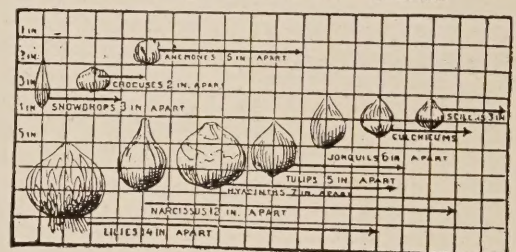 1 IN.
2 IN.
ANEMONES 5 IN. APART
3 IN.
CROCUSES 2 IN. APART
4 IN.
SNOWDROPS 3 IN. APART
SCILLAS 3 IN.
5 IN.
COLCHICUMS
JONQUILS 6 IN APART
TULIPS 5 IN APART
HYACINTHS 7 IN. APART
NARCISSUS 12 IN. APART
LILIES 14 IN APART